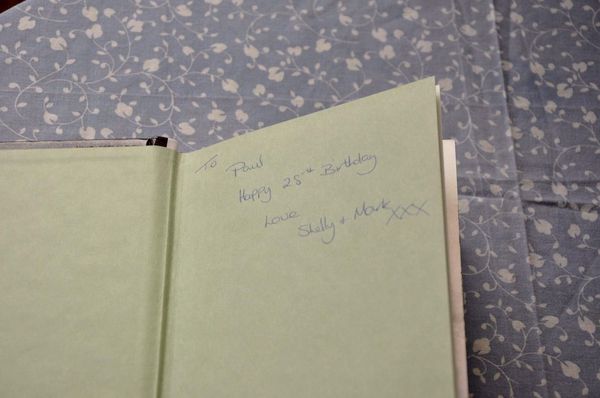 To Paul
Happy 28th Birthday
Love
Shelly + Mark XXX